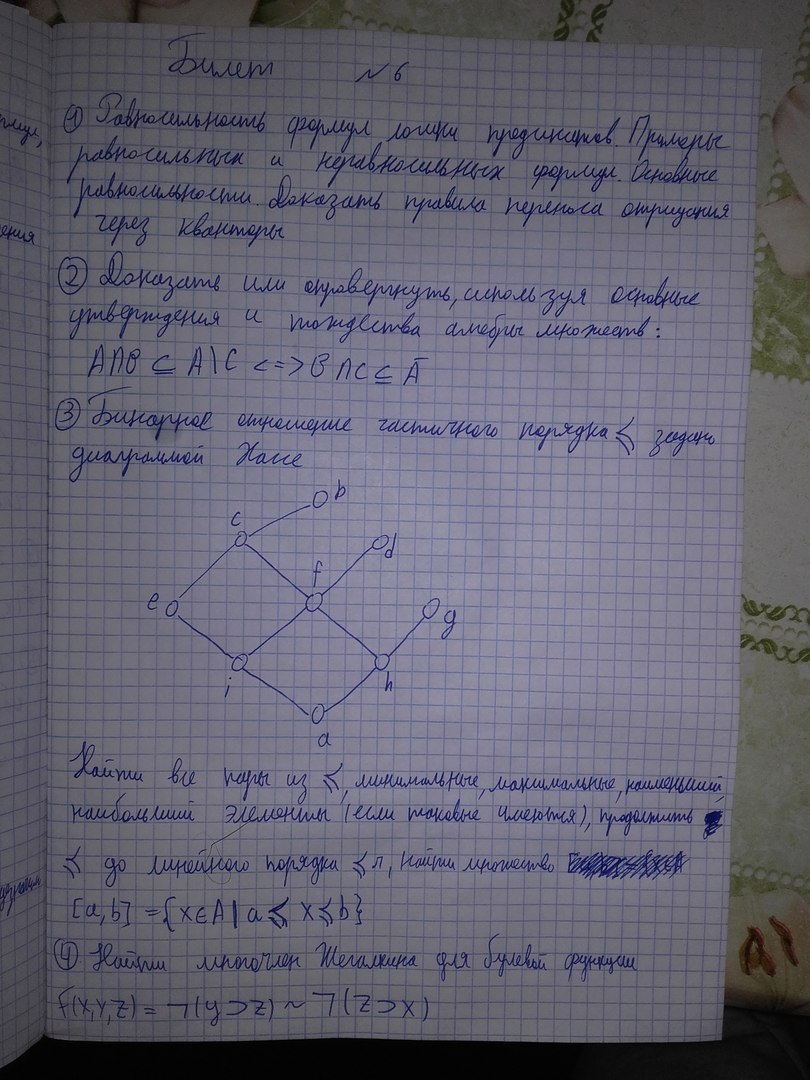 Билет №6
① Равносильность формул логики предикатов. Примеры
равносильных и неравносильных формул. Основные
равносильности. Доказать правила переноса отрицания
через кванторы
② Доказать или опровергнуть, используя основные
утверждения и тождества алгебры множеств:
A∩B ⊆ A\C <=> B∩C ⊆ Ā
③ Бинарное отношение частичного порядка ≤ задано
диаграммой Хассе
b
c
d
f
e
g
i
h
a
Найти все пары из ≤, минимальные, максимальные, наименьший,
наибольший элементы (если таковые имеются), продолжить
≤ до линейного порядка ≤л, найти множество
[a,b] = {x∈A | a ≤ x ≤ b}
④ Найти многочлен Жегалкина для булевой функции
f(x,y,z) = ¬(y⊃z) ~ ¬(z⊃x)